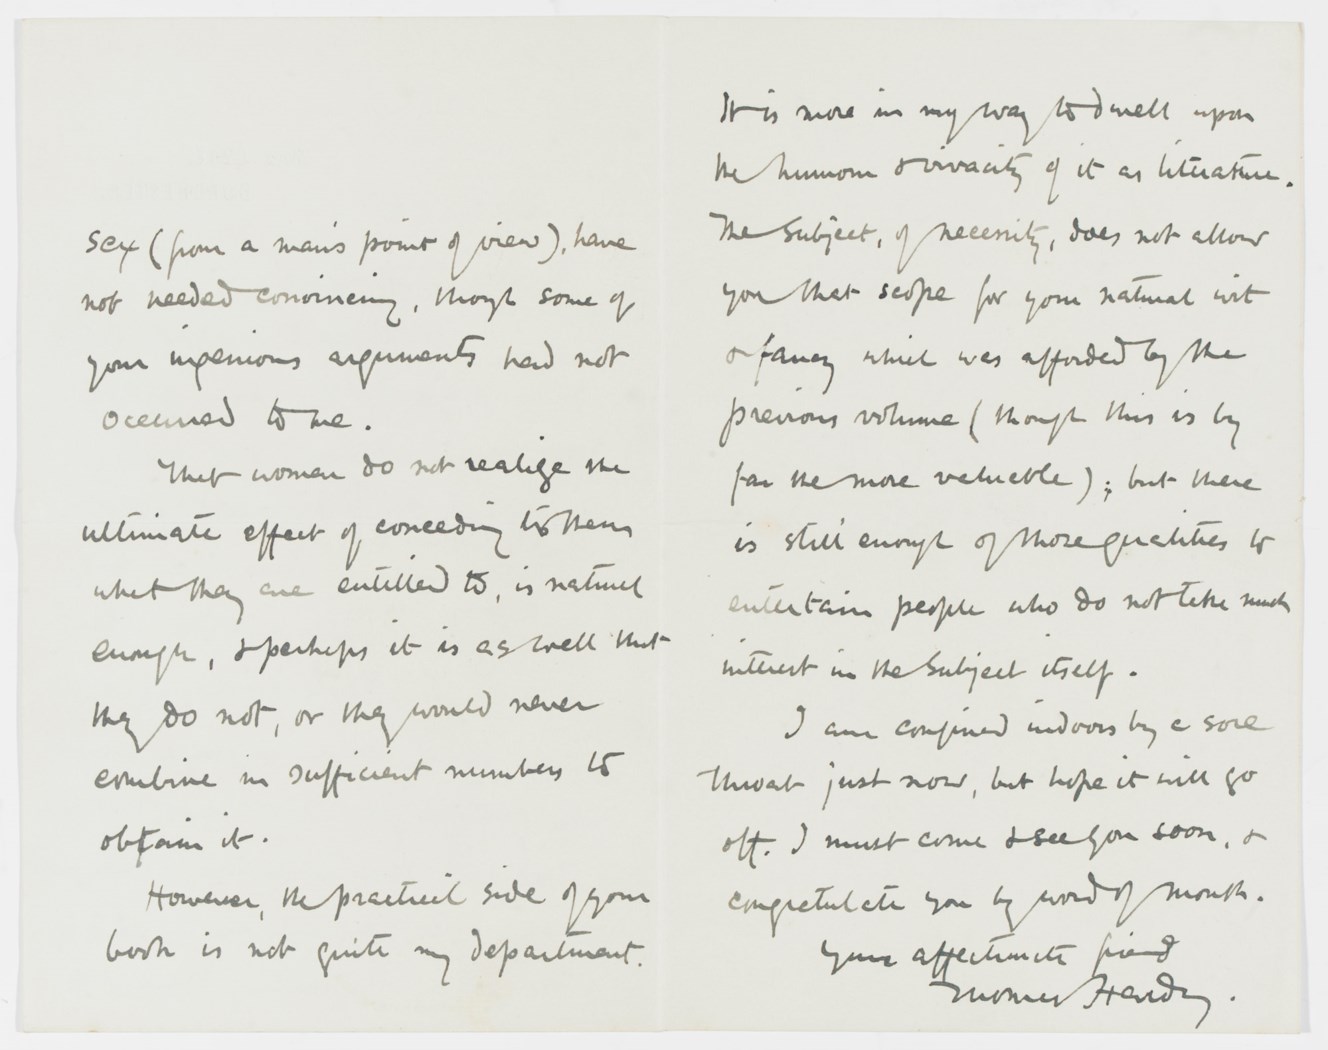 sex (from a man's point of view), have
not needed convincing, though some of
your ingenious arguments had not
occurred to me.
That women do not realize the
ultimate effect of conceding to them
what they are entitled to, is natural
enough, & perhaps it is as well that
they do not, or they would never
combine in sufficient numbers to
obtain it.
However, the practical side of your
book is not quite my department.
It is more in my way to dwell upon
the humour & vivacity of it as literature.
The subject, of necessity, does not allow
you that scope for your natural wit
& fancy which was afforded by the
previous volume (though this is by
far the more valuable); but there
is still enough of those qualities to
entertain people who do not take much
interest in the subject itself.
I am confined indoors by a sore
throat just now, but hope it will go
off. I must come & see you soon, &
congratulate you by word of mouth.
Your affectionate friend
Thomas Hardy.